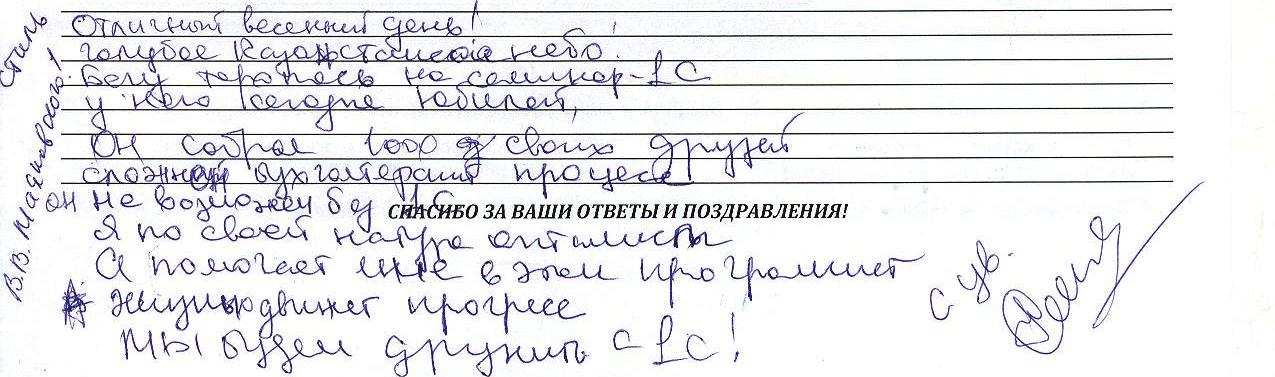 Стиль
В.В. Маяковского!
Отличный весенний день!
голубое Казахстанское небо.
Бегу торопясь на семинар-1С
у него сегодня юбилей,
Он собрал 1000 своих друзей
сложный бухгалтерский процесс
он не возможен без 1С
СПАСИБО ЗА ВАШИ ОТВЕТЫ И ПОЗДРАВЛЕНИЯ!
Я по своей натуре оптимист
А помогает мне в этом программист
Жизнью движет прогресс
Мы будем дружить с 1С!
с ув.